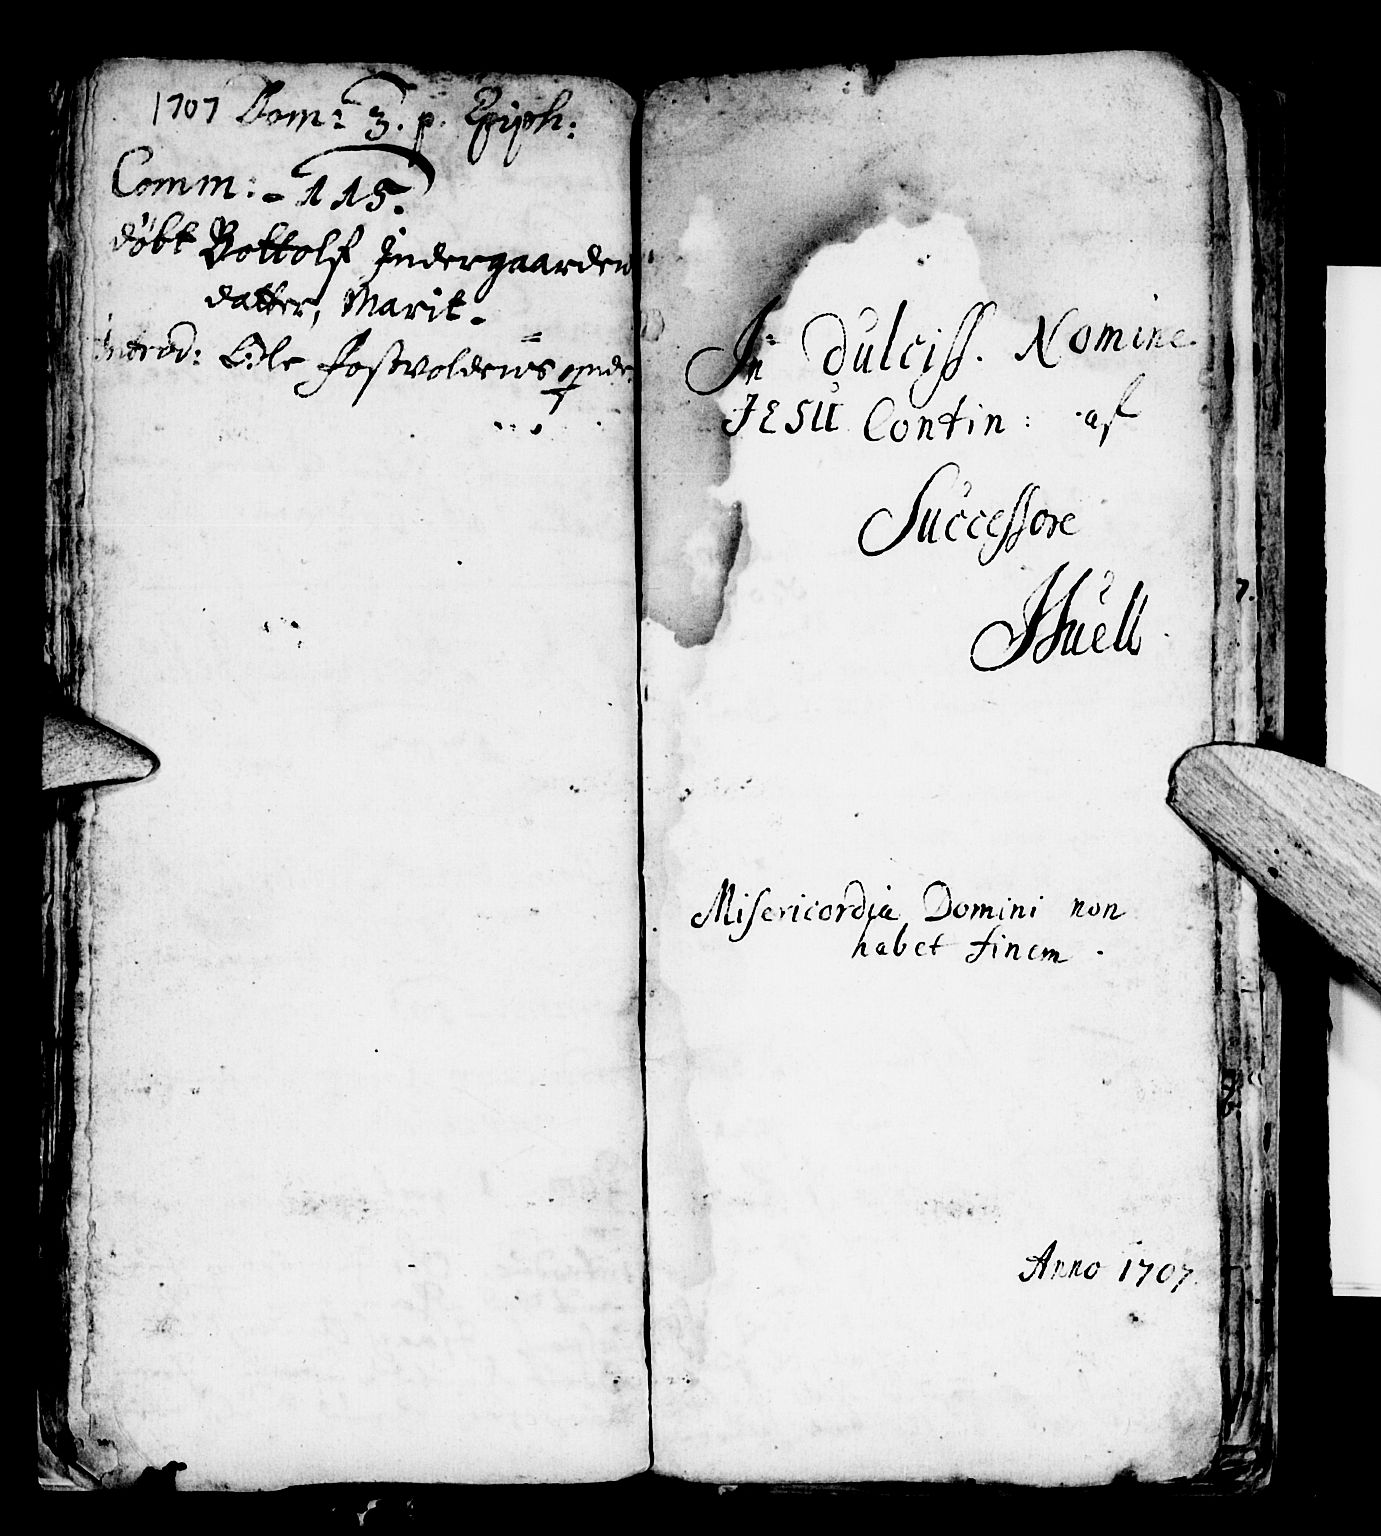 1707 Dom: 3. p. Epiph:
Comm: - 115.
döbt Bottolf Indergaardens
datter, Marit.
Introd: Ole
In dulciss. Nomine
JESU Contin: af
Successore
Misericordia Domini non
habet finem.
Anno 1707.